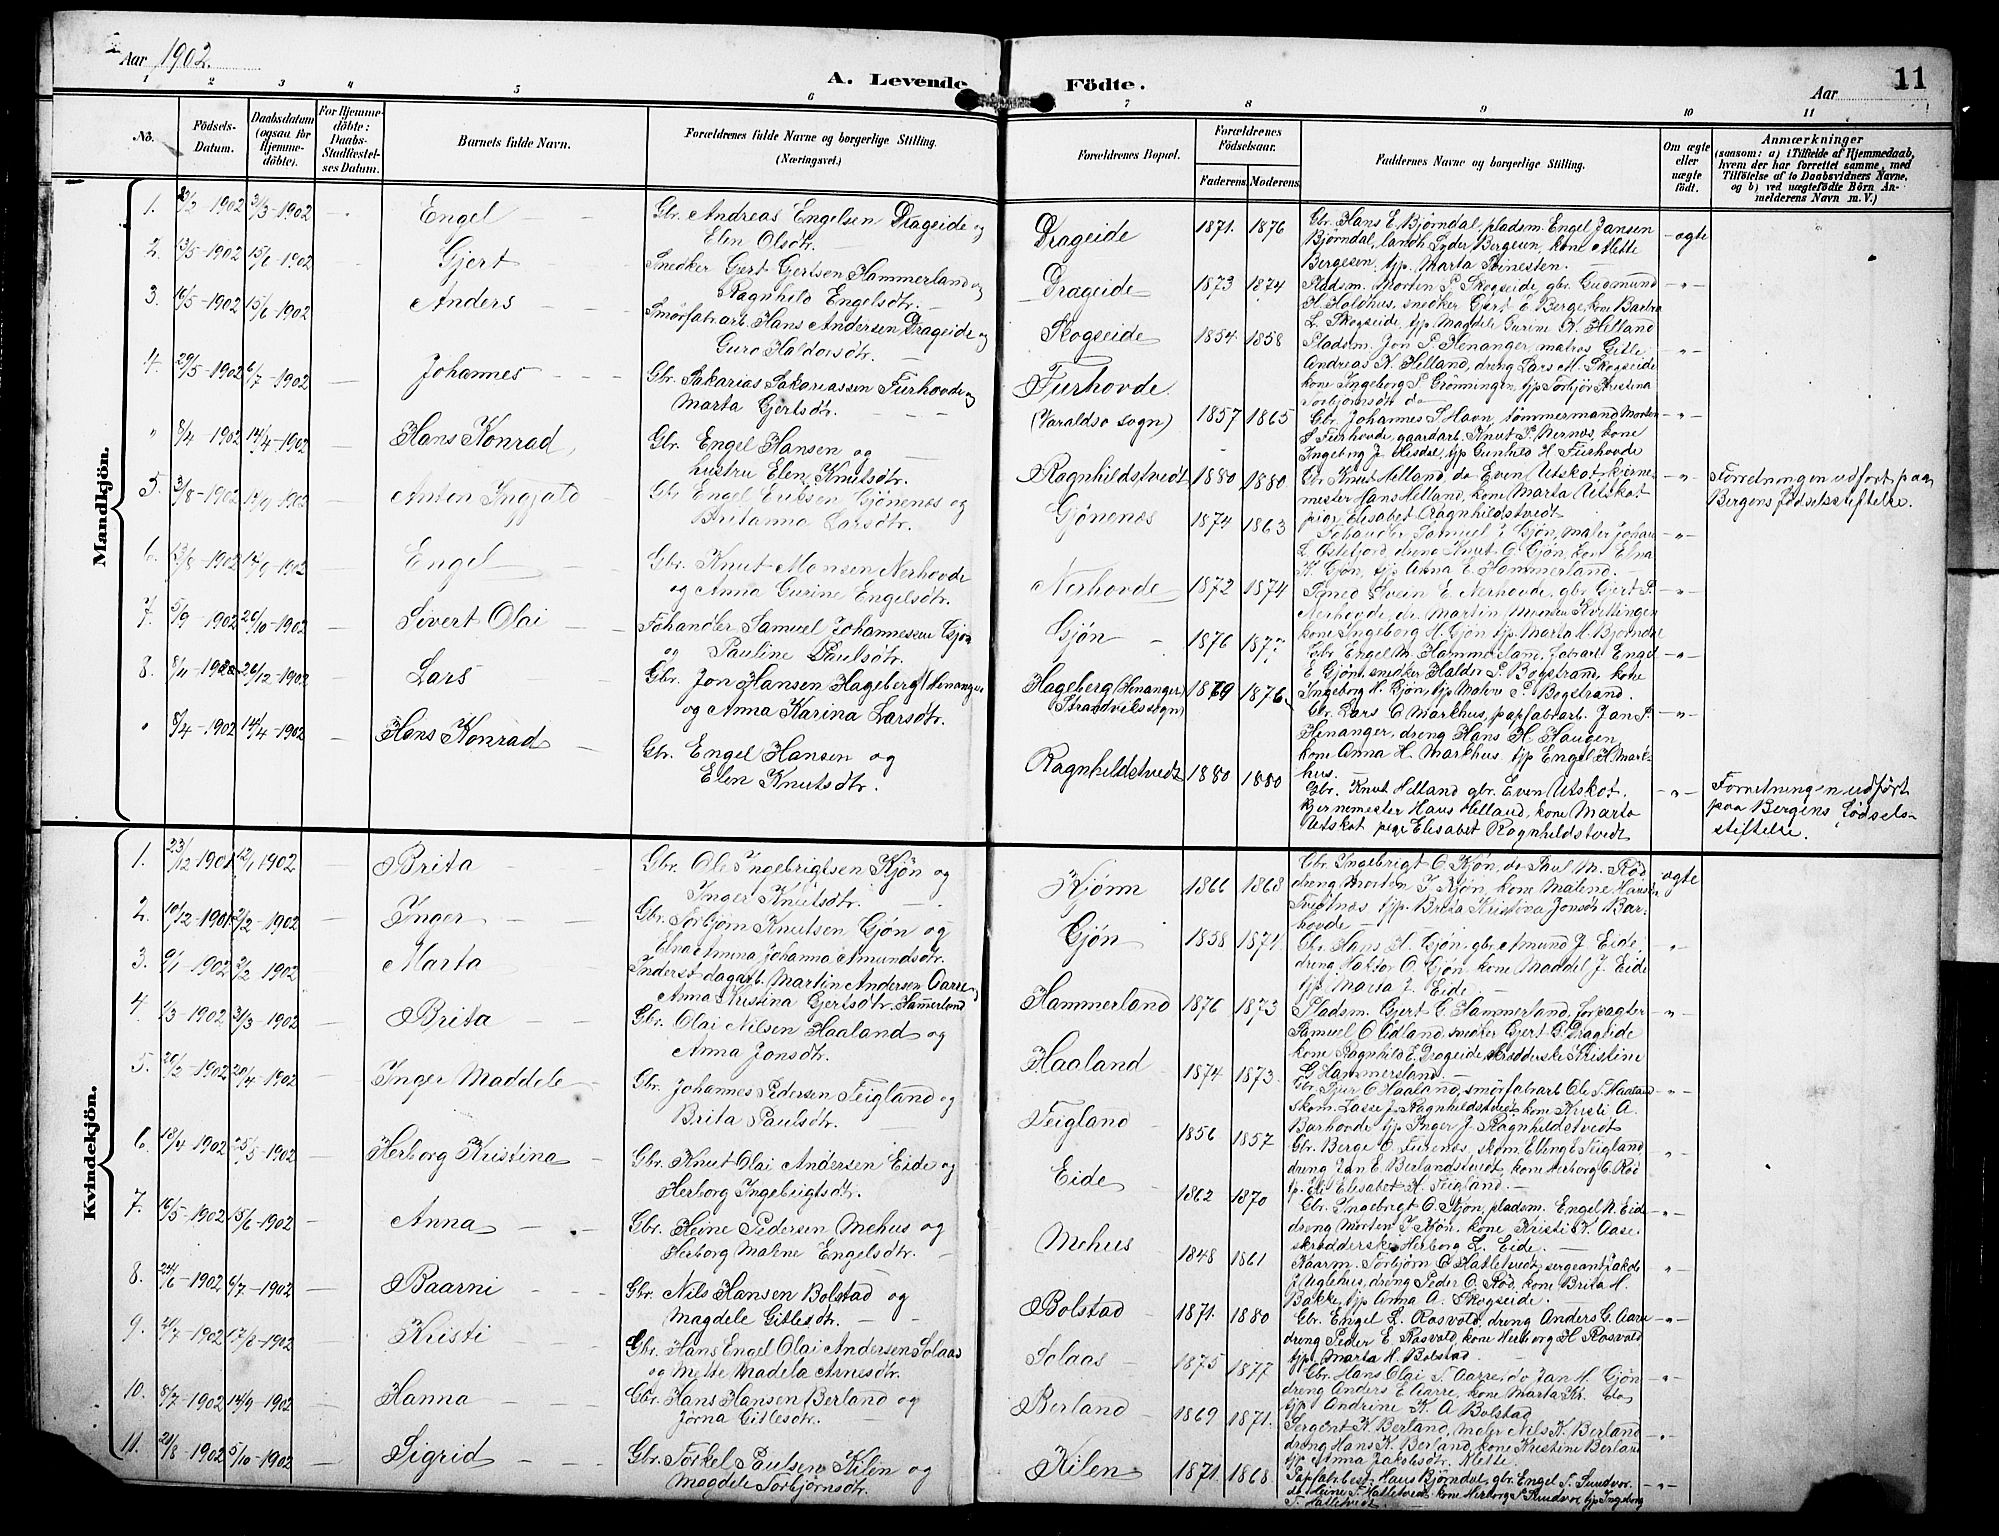 Aar 1902.
A. Levende Födte.
Aar
11
1 2 3 4 5 6 7 8 9 10 11
No.
Födsels-Datum.
Daabsdatum (ogsaa for Hjemme-döbte).
For Hjemme-döbte: Daabs-Stadfæstelses Datum.
Barnets fulde Navn.
Forældrenes fulde Navne og borgerlige Stilling. (Næringsvei.)
Forældrenes Bopæl.
Forældrenes Födselsaar.
Faderens. Moderens.
Faddernes Navne og borgerlige Stilling.
Om ægte eller uægte födt.
Anmærkninger
(saasom: a) i Tilfælde af Hjemmedaab, hvem der har forrettet samme, med Tilföielse af to Daabsvidners Navne, og b) ved uægtefödte Börn Anmelderens Navn m. V.)
Mandkjön.
1. 1902 31/3-1902 Engel Gbr. Andreas Engelsen Drageide og
Elen Olsdtr. Drageide 1871. 1876 Gbr. Hans E. Bjørndal, pladsm. Engel Jansen
Bjørndal, Bergesen, kone Mette
Bergesen, tjp. Marta ægte
2. 13/5-1902 15/6-1902 Gjert Snedker Gert Gjertsen Hammerland og
Ragnhild Engelsdtr. Drageide 1873 1874 Pladsm. Morten P. Skogseide, gbr. Gudmund
H. Holdhus, snedker Gjert E. Berge, kone Barbra
L. Skogseide, tjp. Magdele Gurine K. Helland
3. 16/5-1902 15/6-1902 Anders Smørfabarb. Hans Andersen Drageide og
Guro Haldorsdtr. Skogseide 1854 1858 Pladsm. Jon P. Henanger, matros Gitle
Andreas K. Helland, dreng Lars M. Skogseide
kone Ingeborg P. Grønningen, tjp. Torbjør Kristina
Torbjørnsdtr. do
4. 29/5-1902 6/7-1902 Johannes Gbr. Sakarias Sakariassen Fürhovde og
Marta Gjertsdtr. Fürhovde
(Varaldsø sogn) 1857 1865 Gbr. Johannes S. Havn, tømmermand Morten
S. Fürhovde, gaardarb. Knut P. Nernes, kone
Ingeborg J. Hisdal, tjp. Gunhild H. Fürhovde
" 8/4-1902 14/4-1902 Hans Konrad Gbr. Engel Hansen og
hustru Elen Knutsdtr. Ragnhildstvedt 1880 1880 Gbr. Knut Helland, do Even Utskot, kjerne-
mester Hans Helland, kone Marta Utskot
pige Elisabet Ragnhildstvedt
Forretningen udført paa
Bergens fødselsstiftelse.
5. 3/8-1902 14/9-1902 Anton Ingjald Gbr. Engel Eriksen Gjønenes og
Britanna Larsdtr. Gjønenes 1874 1863 Fohandler Samuel J. Gjøn, maler Johan
L. Østefjord, dreng Knut O. Gjøn, kone Elna
K. Gjøn, tjp. Anna E. Hammerland.
6. 14/9-1902 Engel Gbr. Knut Monsen Nerhovde
og Anna Gurine Engelsdtr. Nerhovde 1872 1874 Smed Svein E. Nerhovde, gbr. Gjert P.
Nerhovde, dr. Martin Monsen Kvittingen
kone Ingeborg H. Gjøn, tjp. Marta H. Bjørndal
7. 5/9-1902 26/10-1902 Sivert Olai Fohandler Samuel Johannesen Gjøn
og Pauline Paulsdtr. Gjøn 1876 1877 Gbr. Engel M. Hammerland, fabarb. Engel
E. Gjøn, snedker Haldor P. Bogstrand, kone
Ingeborg H. Gjøn, tjp. Malene P. Bogstrand.
8. 26/12-1902 Lars Gbr. Jon Hansen Hageberg (Henanger)
og Anna Karina Larsdtr. Hageberg (Henanger)
Strandviks sogn) 1879 1876 Gbr. Lars O. Markhus, papfabarb. Jan P.
Henanger, dreng Hans H. Haugen,
kone Anna H. Markhus, tjp. Engel H. Mark-
hus.
" 8/4-1902 14/4-1902 Hans Konrad Gbr. Engel Hansen og
Elen Knutsdtr. Ragnhildstvedt 1880 1880 Gbr. Knut Helland gbr. Even Utskot.
kjernemester Hans Helland, kone Marta
Utskot pige Elisabet Ragnhildstvedt
Forretningen udført
paa Bergens Fødsels-
stiftelse.
Kvindekjön.
1. 23/12-1901 12/1 1902 Brita Gbr. Ole Ingebrigtsen Kjøn og
Inger Knutsdtr. Kjønn 1866 1868 Gbr. Ingebrigt O. Kjøn, do Paul M. Rød
dreng Morten I. Kjøn, kone Malene Hansdtr
tjp. Brita Kristina Jonsdtr Bar-
hovde ægte
2. 10/12-1901 2/2-1902 Inger Gbr. Torbjørn Knutsen Gjøn og
Elna Anna Johanna Amundsdtr. Gjøn 1858 1874 Gbr. Hans H. Gjøn, gbr. Amund J. Eide,
dreng Haktor O. Gjøn, kone Maddel J. Eide
tjp. Marta J. Eide.
3. 9/1-1902 2/2-1902 Marta Inderst dagarb. Martin Andersen Aarre,
Anna Kristina Gjertsdtr. Hammerland Hammerland 1876 1873 Pladsm. Gjert G. Hammerland, forvagter
Samuel O. Eidland, snedker Gjert G. Drageide
kone Ragnhild E. Drageide, Kristine
G. Hammersland.
4. 1/3-1902 31/3-1902 Brita Gbr. Olai Nilsen Haaland og
Anna Jonsdtr. Haaland 1874 1873 Gbr. O. Haaland, smørfabarb. Ole S. Haaland
skom. Lasse J. Ragnhildstvedt kone Kristi A.
Barhovde tjp. Inger J. Ragnhildstvedt
5. 20/2-1902 20/4-1902 Inger Maddele Gbr. Johannes Pedersen Teigland og
Brita Paulsdtr. Teigland 1856 1857 Gbr. Berge O. skom. Elling E. Teigland
dreng Jan E. Berlandstvedt, kone Herborg O. Rød
tp. Elisabet H. Teigland.
6. 18/4-1902 25/5-1902 Herborg Kristina Gbr. Knut Olai Andersen Eide og
Herborg Ingebrigtsdtr. Eide 1862 1870 Gbr. Ingebrigt O. Kjøn, pladsm. Engel N. Eide
dreng Morten I. Kjøn, kone Kristi K. Aase
skrædderske Herborg L. Eide.
7. 16/5-1902 15/6-1902 Anna Gbr. Heine Pedersen Mehus og
Herborg Malene Engelsdtr. Mehus 1848 1861 Kaarm. Torbjørn O. Hatletvedt, sergeant Jakob
J. Uglehus, dreng Peder O. Rød, kone Brita H.
Bakke, tjp. Anna A. Skogseide.
8. 24/6-1902 6/7-1902 Baarni Gbr. Nils Hansen Bolstad og
Magdele Gitlesdtr. Bolstad 1871. 1880 Gbr. Engel L. Rosvold, dreng Anders G. Aarre
dreng Peder E. Rosvold, kone Herborg H. Rosvold
tjp. Marta H. Bolstad.
9. 1902 17/8-1902 Kristi Gbr. Hans Engel Olai Andersen Solaas
og Mette Madela Arnesdtr. Solaas 1875 1877 Gbr. Hans Olai S. Aarre, do Jan H. Gjøn
dreng Anders E. Aarre, kone Marta Kr. do,
tjp. Andrine K. A Bolstad
10. 8/7-1902 14/9-1902 Hanna Gbr. Hans Hansen Berland og
Jørna Gitlesdtr. Berland 1869 1871. Sergent K. Berland, maler Nils K. Berland
dreng Hans K. Berland, kone Kristine Berland
tjp. Anna Jakobsdtr. Mette.
11. 20/8-1902 5/10-1902 Sigrid Gbr. Torkel Paulsen Kilen og
Magdele Torbjørnsdtr. Kilen 1871. 1868 Papfab.best. Hans Bjørndal, gbr. Engel S. Sundvor.
do Heine T. Hatletvedt, kone Herborg S. Sundvor tjp Ingeborg
T. Hatletvedt